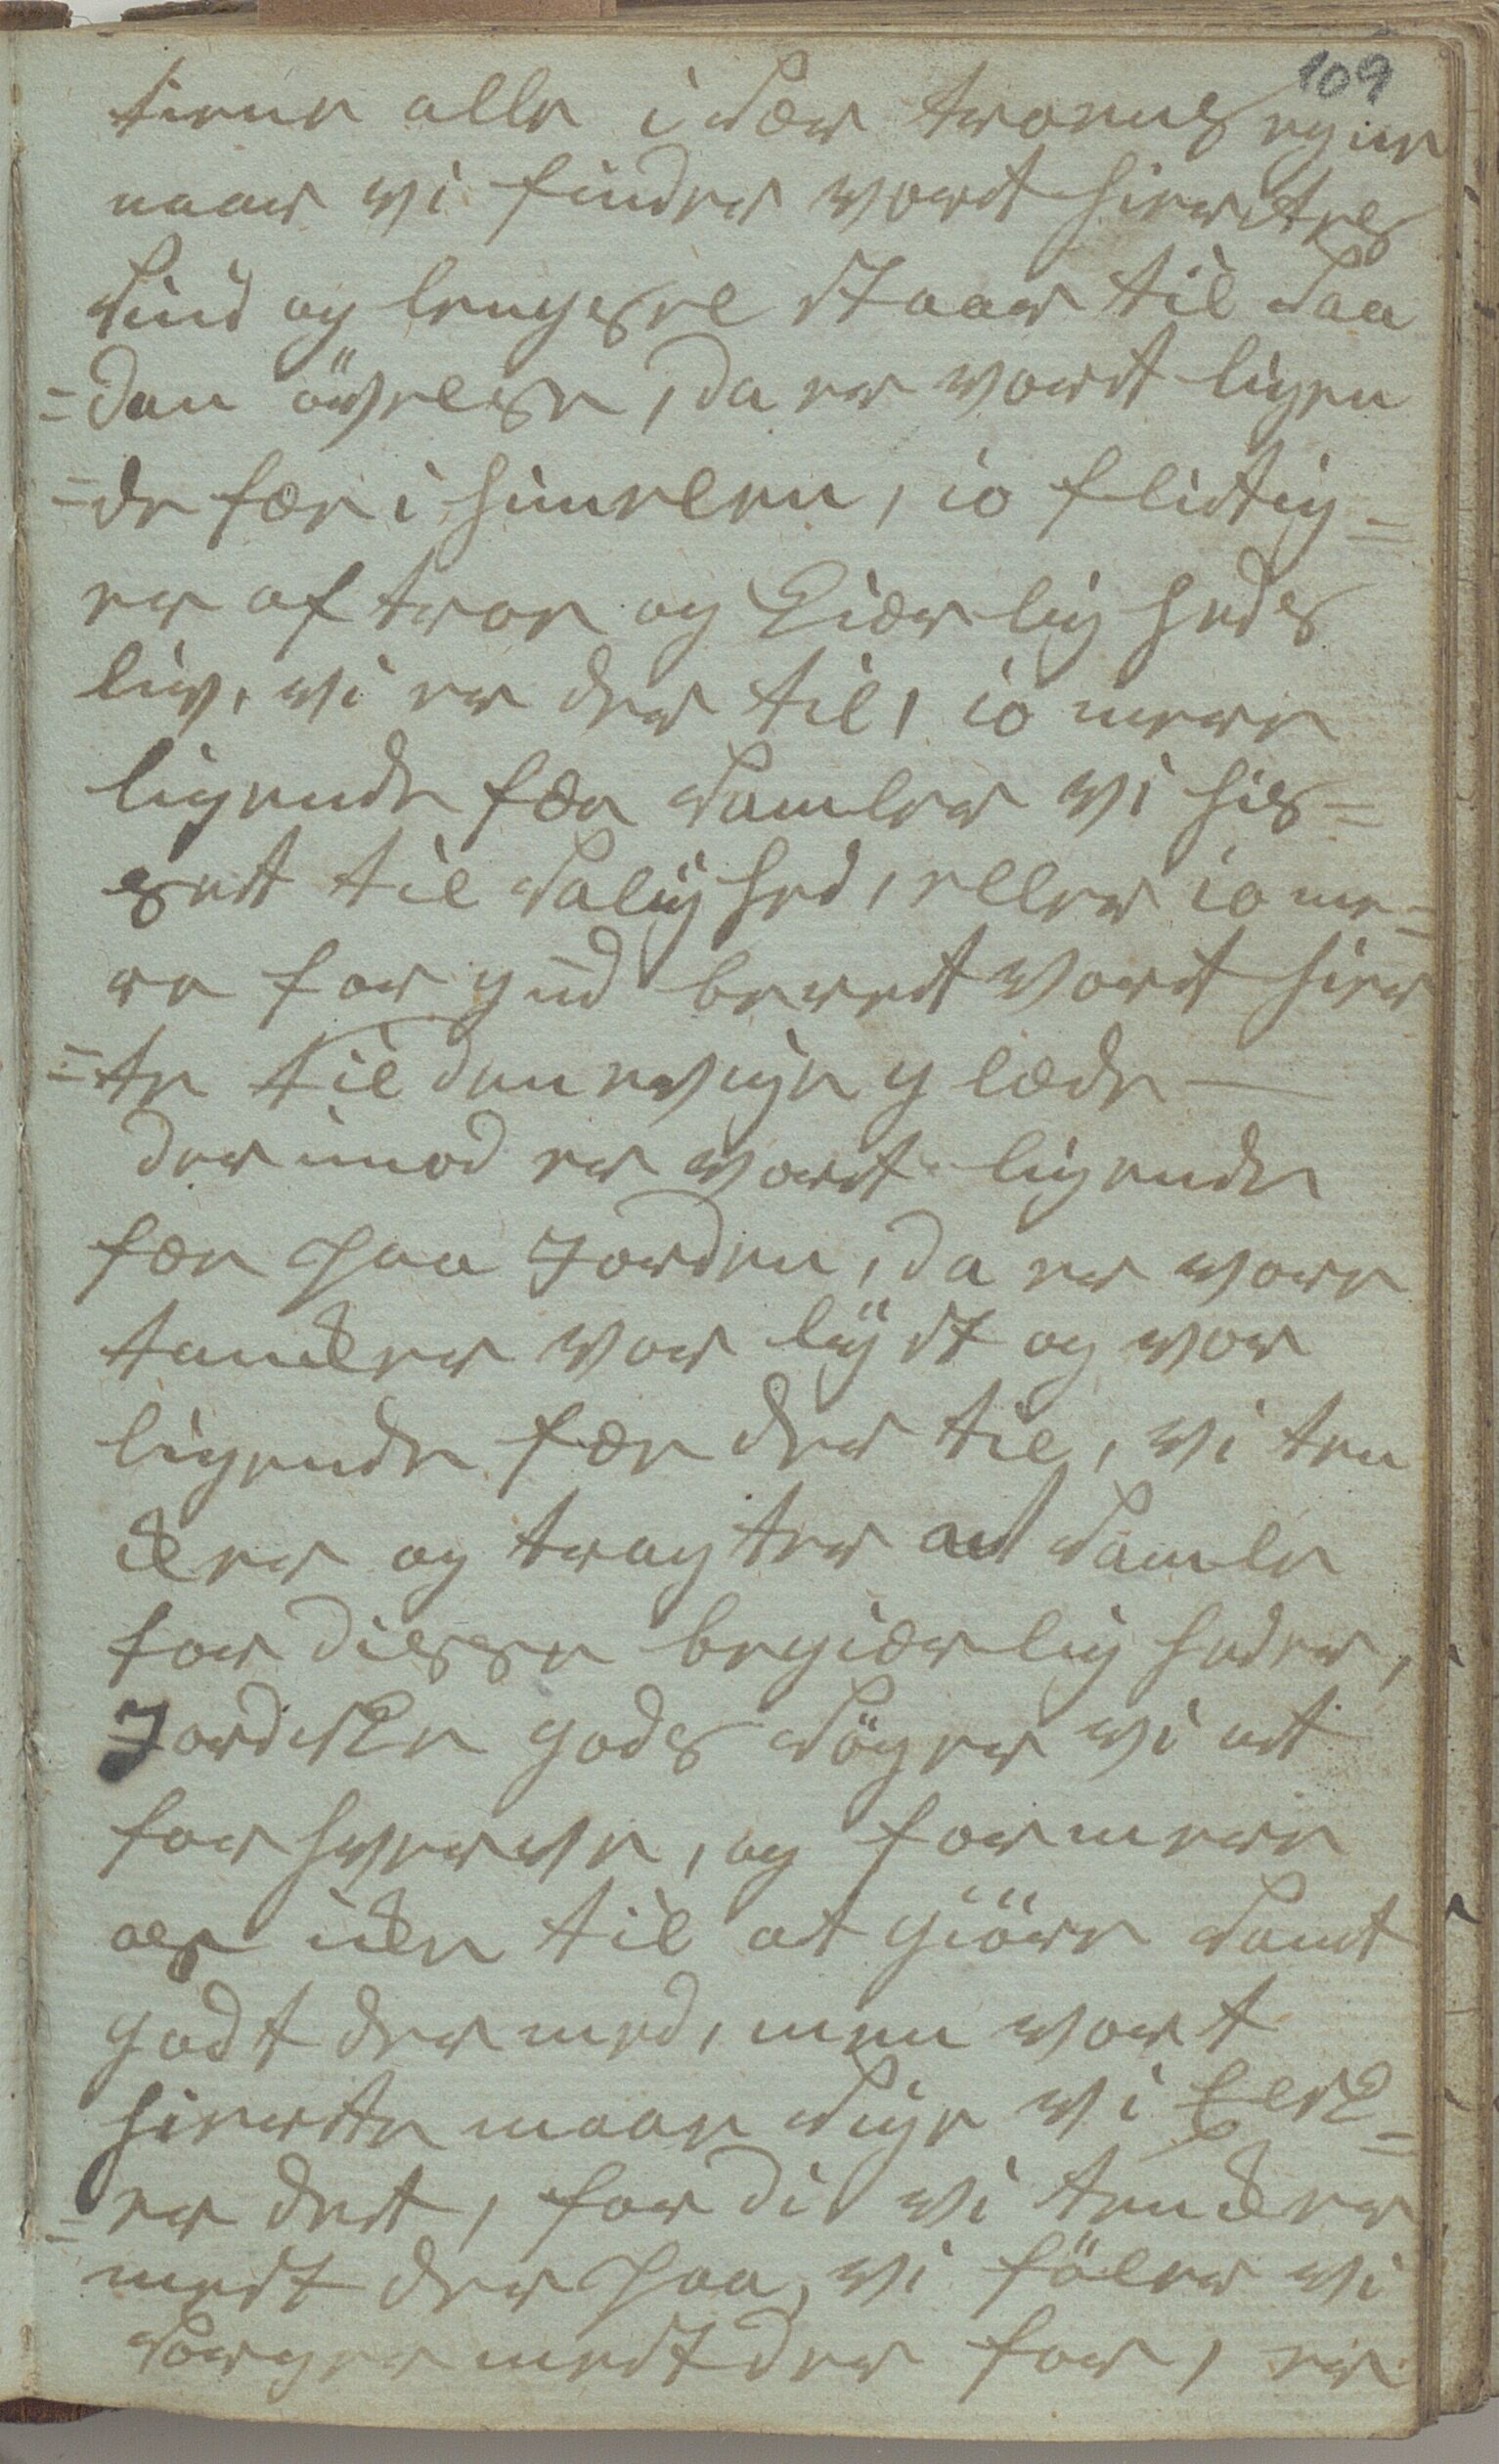 109
tiene alle i Sær troens egne
naar vi finder vordt hiertes
Sind og lengsel Staar til Saa
=dan övelse, da er vordt ligen
=de fæe i himelen, io flittig=
er af troe og Kierligheds
liv, vi er der til, io mere
ligende fæe Samler vi his=
set til Salighed, eller io me=
re for gud beredt vordt hier
=te til den evige glæde —
der imod er vordt ligende
fæe paa Jorden, da er vore
tanker vor lÿst og vor
ligende fæe der til, vi ten
ker og tragter at Samle
for disse begierligheder,
Jordiske gods Söger vi at
forhverve, og formere
os ike til at giöre Samt
godt dermed, men vort
hierte maae Sige vi Elsk=
=er det, for di vi tenker
mest der paa, vi föler vi
Sörger mest der for, er